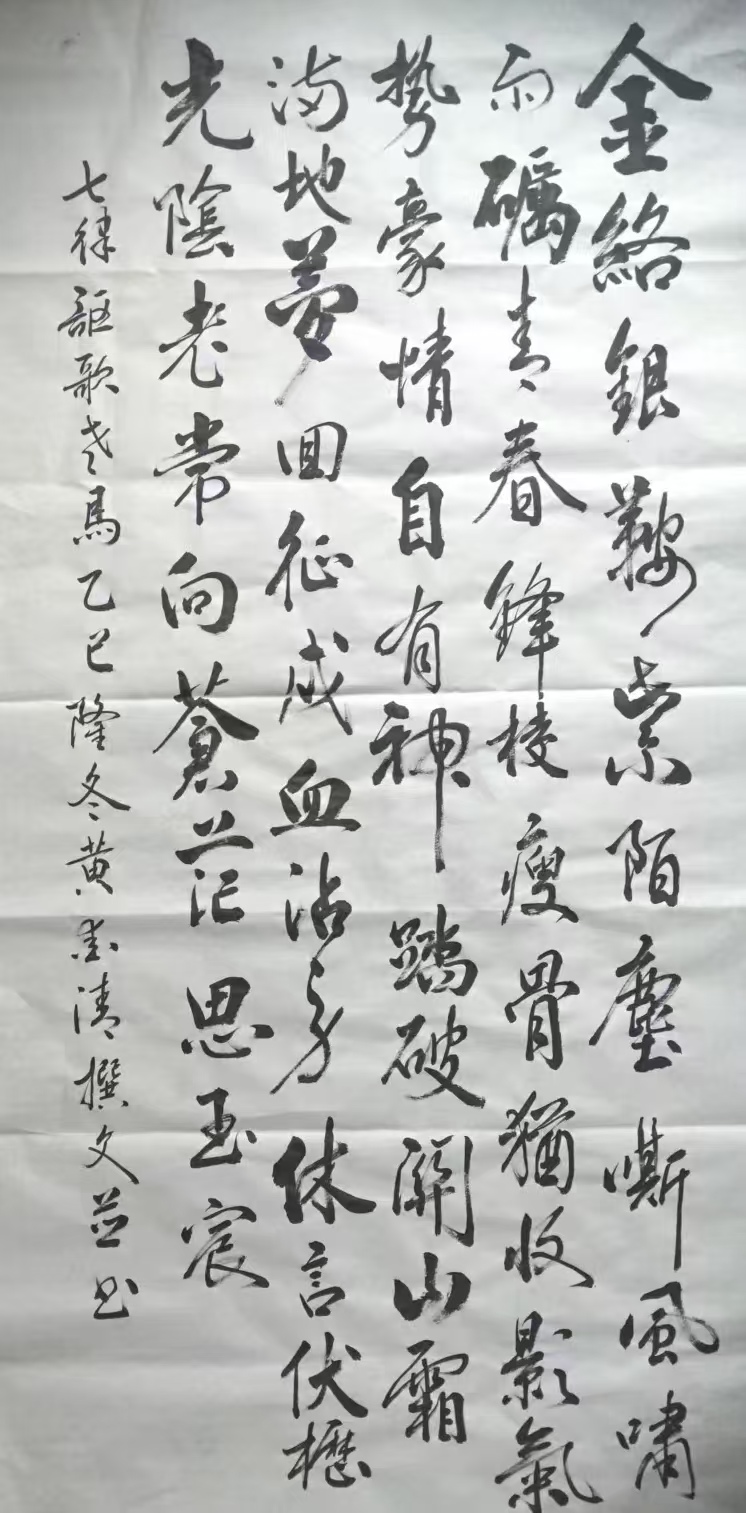 金絡銀鞍紫陌塵嘶風嘯
雨礪青春鋒棱瘦骨猶收影氣
勢豪情自有神踏破關山霜
滿地夢回征戍血沾身休言伏櫪
光陰老常向蒼茫思玉宸
七律謳歌老馬乙巳隆冬黄志清撰文並书